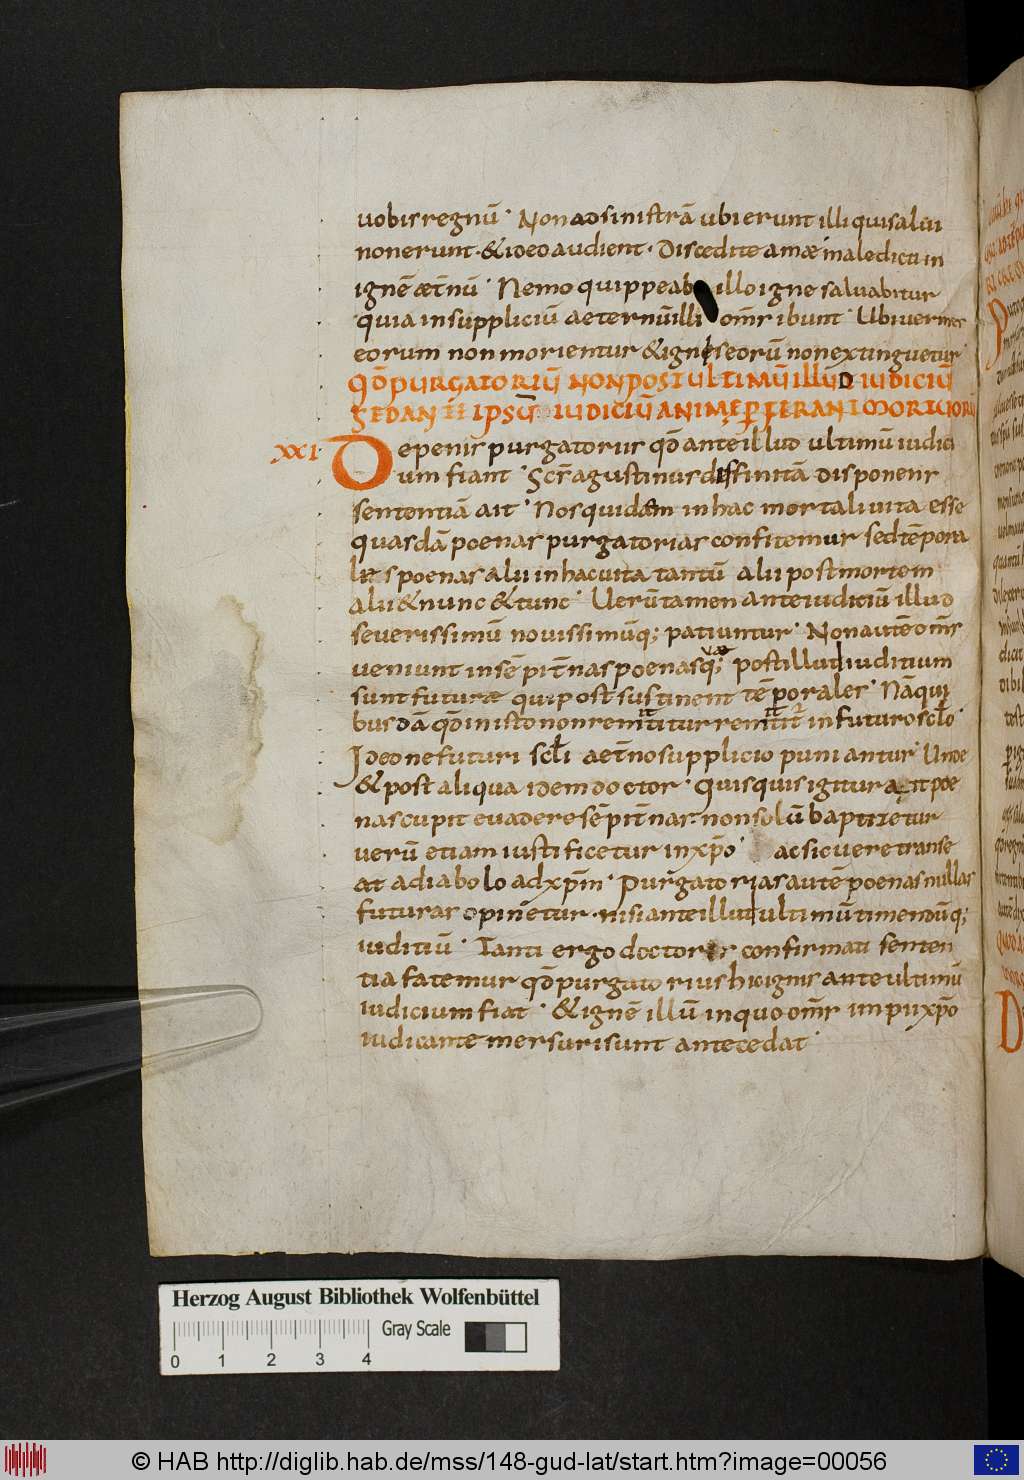 uobis regnū · Non ad sinistrā ubi erunt illi qui salui
non erunt · & ideo audient · Discedite a me maledicti in
ignē aet̄nū · Nemo quippe ab illo igne saluabitur
quia in suppliciū aeternū illi om̄s ibunt · Ubi uermes
eorum non morientur & ignis eorū non extinguetur ·
QĐ PURGATORIŪ NON POST ULTIMŪ ILLŪD IUDICIŪ
IPSŪ IUDICIŪ ANIMĘ
XXI · De penis purgatoriis qđ ante illud ultimū iudici
um fiant · Sc̄s agustinus diffinitā disponens
sententiā ait · Nos quidem in hac mortali uita esse
quasdā poenas purgatorias confitemur sed tēpora
les poenas alii in hac uita tantū alii post mortem
alii & nunc & tunc · Uerūtamen ante iudiciū illud
seuerissimū nouissimūq; patiuntur · Non autē om̄s
ueniunt in sēpit̄nas poenas q; post illud iuditium
sunt futurae qui post sustinent tēporales · Nā qui
busdā qđ in isto non remittitur remittit̄ in futuro sc̄lo ·
Ideo ne futuri sc̄li aet̄no supplicio puniantur · Unde
& post aliqua idem doctor · Quisquis igitur
nas cupit euadere sēpit̄nas · non solū baptizetur
uerū etiam iustificetur in xp̄o · ac sic uere transe
at a diabolo ad xp̄m · Purgatorias autē poenas nullas
futuras opinetur · nisi ante illud ultimū tremendūq;
iuditiū · Tanti ergo doctoris confirmati senten
tia fatemur qđ purgatorius hic ignis ante ultimū
iudicium fiat · & ignē illū in quo om̄s impii xp̄o
iudicante mersuri sunt antecedat ·
Herzog August Bibliothek Wolfenbüttel
Gray Scale
0 1 2 3 4
© HAB http://diglib.hab.de/mss/148-gud-lat/start.htm?image=00056